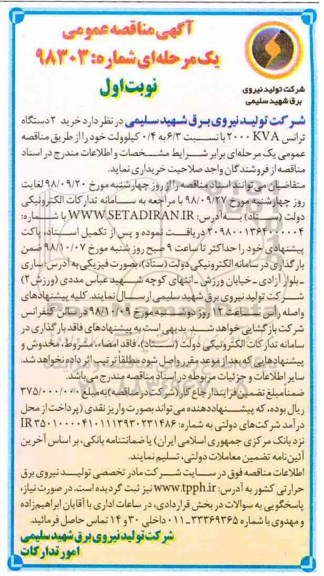 آگهی مناقصه عمومی
یک مرحله‌ای شماره: ۹۸۳۰۳
نوبت اول
شرکت تولید نیروی
برق شهید سلیمی
شرکت تولید نیروی برق شهید سلیمی در نظر دارد خرید ۲ دستگاه
ترانس ۲۰۰۰ KVA با نسبت ۶/۳ به ۰/۴ کیلوولت خود را از طریق مناقصه
عمومی یک مرحله‌ای برابر شرایط مشخصات و اطلاعات مندرج در اسناد
مناقصه از فروشندگان واجد صلاحیت خریداری نماید.
متقاضیان می‌توانند اسناد مناقصه را از روز چهارشنبه مورخ ۹۸/۰۹/۲۰ لغایت
روز چهارشنبه مورخ ۹۸/۰۹/۲۷ با مراجعه به سامانه تدارکات الکترونیکی
دولت (ستاد) به آدرس: WWW.SETADIRAN.IR با شماره:
۲۰۹۸۰۰۱۳۶۴۰۰۰۰۰۴ دریافت نموده و پس از تکمیل اسناد، پاکت
پیشنهادی خود را حداکثر تا ساعت ۹ صبح روز شنبه مورخ ۹۸/۱۰/۰۷ ضمن
بارگذاری در سامانه الکترونیکی دولت (ستاد)، بصورت فیزیکی به آدرس: ساری
- بلوار آزادی - خیابان ورزش - انتهای کوچه شهید عباس مددی (ورزش ۲)
شرکت تولید نیروی برق شهید سلیمی ارسال نمایند. کلیه پیشنهادهای
واصله راس ساعت ۱۲ روز دوشنبه مورخ ۹۸/۱۰/۰۹ در سالن کنفرانس
شرکت بازگشایی خواهد شد. بدیهی است به پیشنهادهای فاقد بارگذاری در
سامانه تدارکات الکترونیکی دولت (ستاد)، فاقد امضاء، مشروط، مخدوش و
پیشنهادهایی که بعد از موعد مقرر واصل شود مطلقا ترتیب اثر داده نخواهد شد.
سایر اطلاعات و جزئیات مربوطه در اسناد مناقصه مندرج می‌باشد.
ضمنا مبلغ تضمین فرایند ارجاع کار (شرکت در مناقصه) به مبلغ ۳۷۵/۰۰۰/۰۰۰
ریال بوده، که پیشنهاددهنده می‌تواند بصورت واریز نقدی (پرداخت از محل
درآمد شرکت‌های دولتی به شماره: IR
نزد بانک مرکزی جمهوری اسلامی ایران) یا ضمانتنامه بانکی، بر اساس آخرین
آئین‌نامه تضمین معاملات دولتی، تسلیم نمایند.
اطلاعات مناقصه فوق در سایت شرکت مادر تخصصی تولید نیروی برق
حرارتی کشور به آدرس: www.tpph.ir نیز ثبت گردیده است. در صورت نیاز،
پاسخگویی به سوالات در بخش قراردادی، در ساعات اداری با آقایان ابراهیم‌زاده
و مهدوی با شماره ۳۳۳۶۹۳۶۵-۰۱۱ داخلی ۳۰ و ۱۴ تماس حاصل فرمائید.
شرکت تولید نیروی برق شهید سلیمی
امور تدارکات